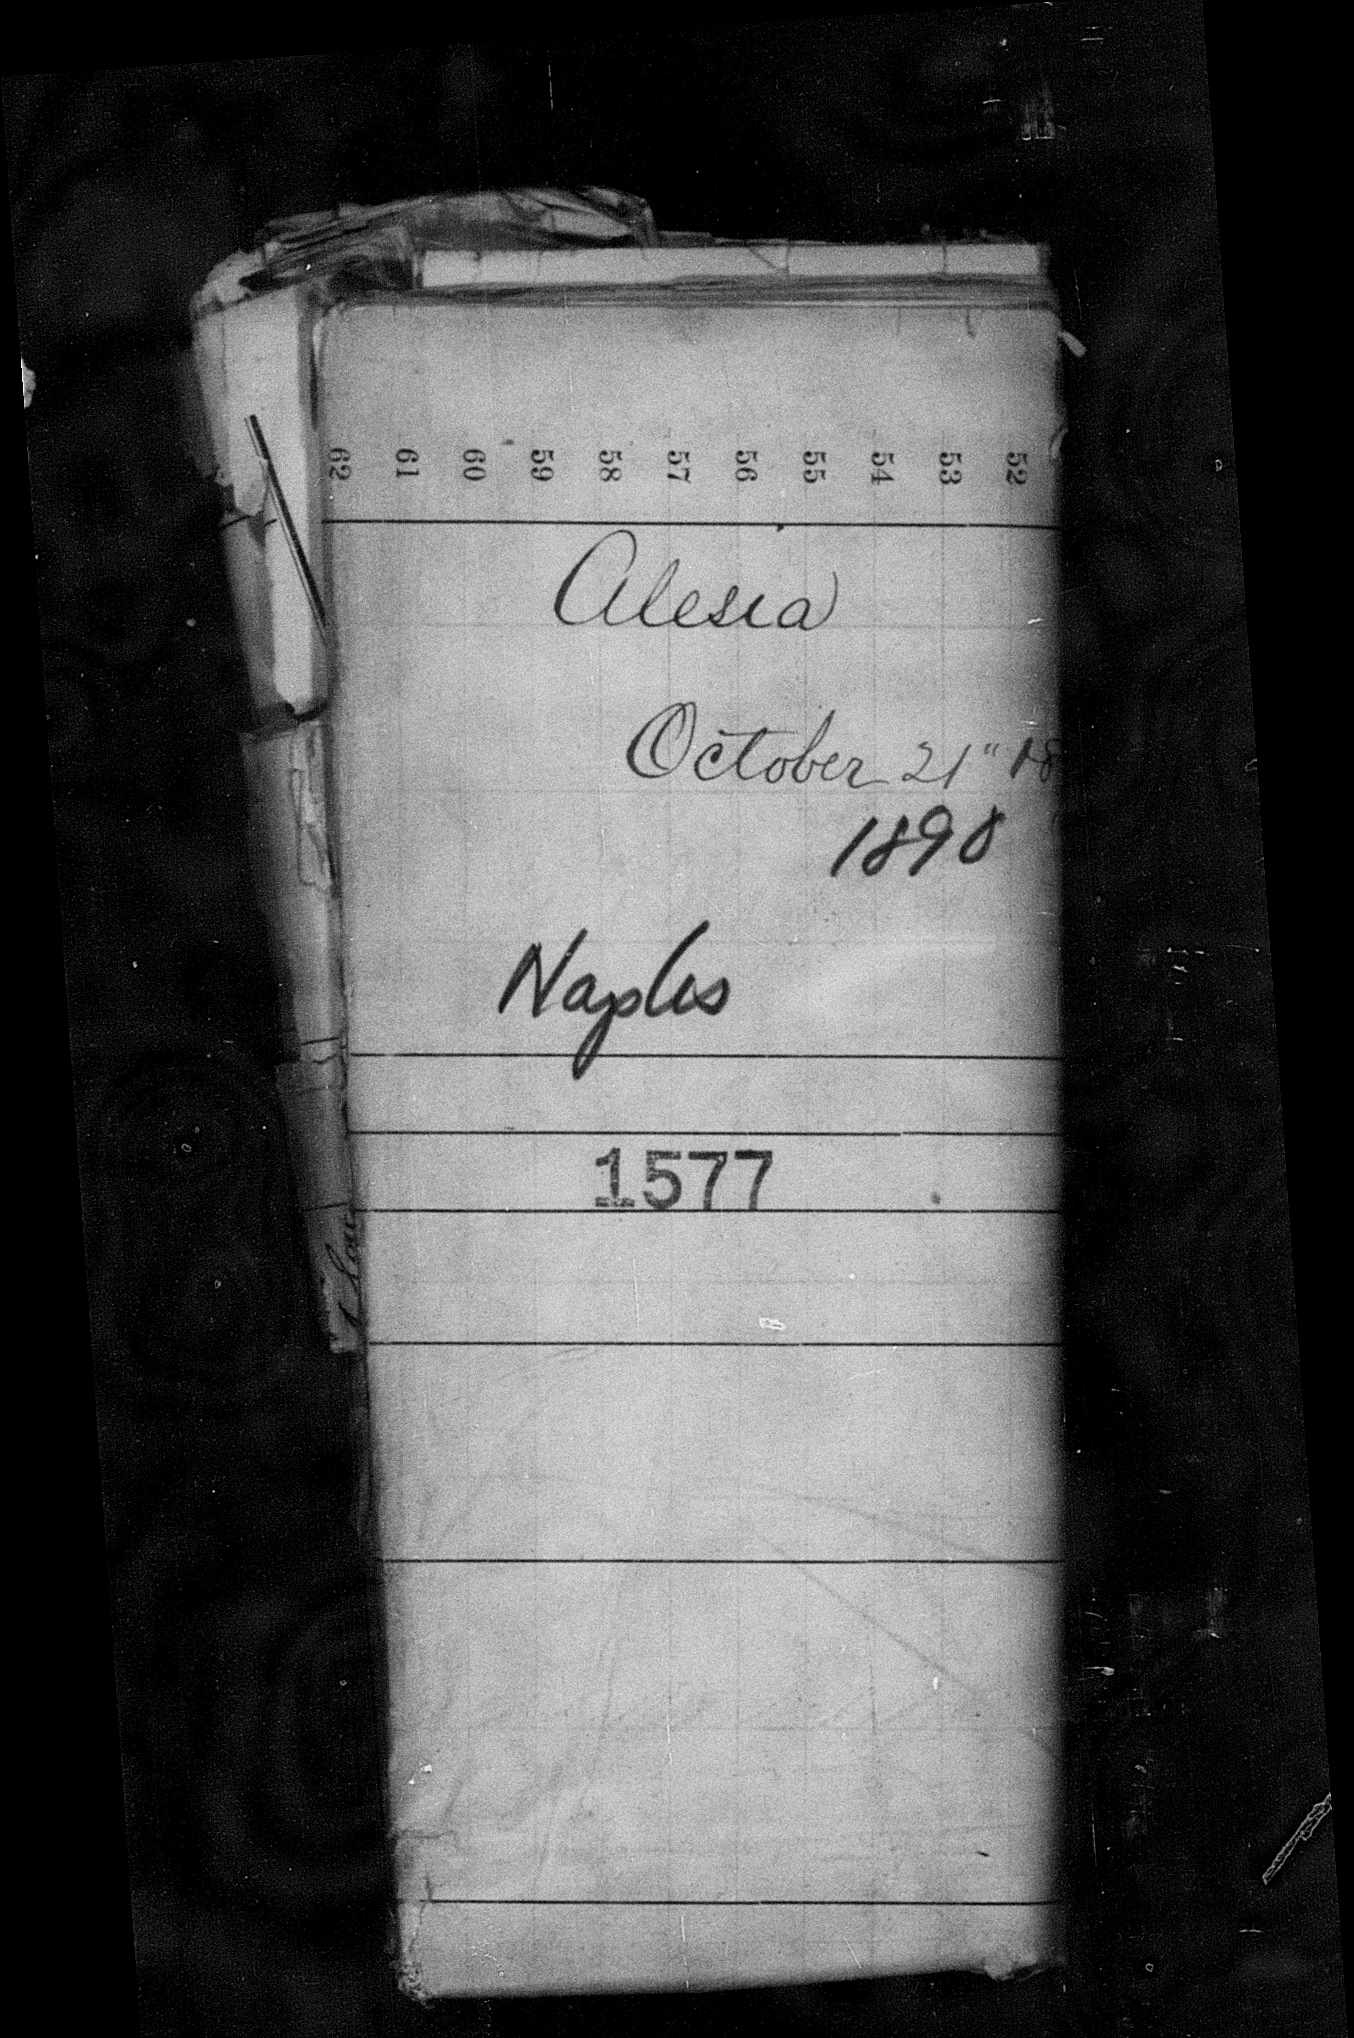 62 61 60 59 58 57 56 55 54 53 52
Alesia
October 21" 18
1898
Naples
1577